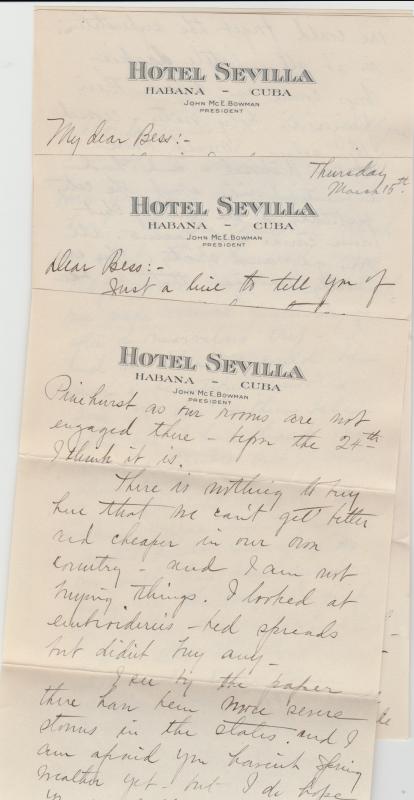 HOTEL SEVILLA
HABANA - CUBA
JOHN MCE. BOWMAN
PRESIDENT
My dear Bess:-
Thursday
March 15th
HOTEL SEVILLA
HABANA - CUBA
JOHN MCE. BOWMAN
PRESIDENT
Dear Bess:-
Just a line to tell you of
HOTEL SEVILLA
HABANA - CUBA
JOHN MCE. BOWMAN
PRESIDENT
Pinehurst as our rooms are not
engaged there - before the 24th
I think it is.
There is nothing to buy
here that we can't get better
and cheaper in our own
country - and I am not
buying things. I looked at
embroideries - bed spreads
but didn't buy any -
I see by the paper
there has been more severe
storms in the states. and I
am afraid you haven't Spring
weather yet - but I do hope